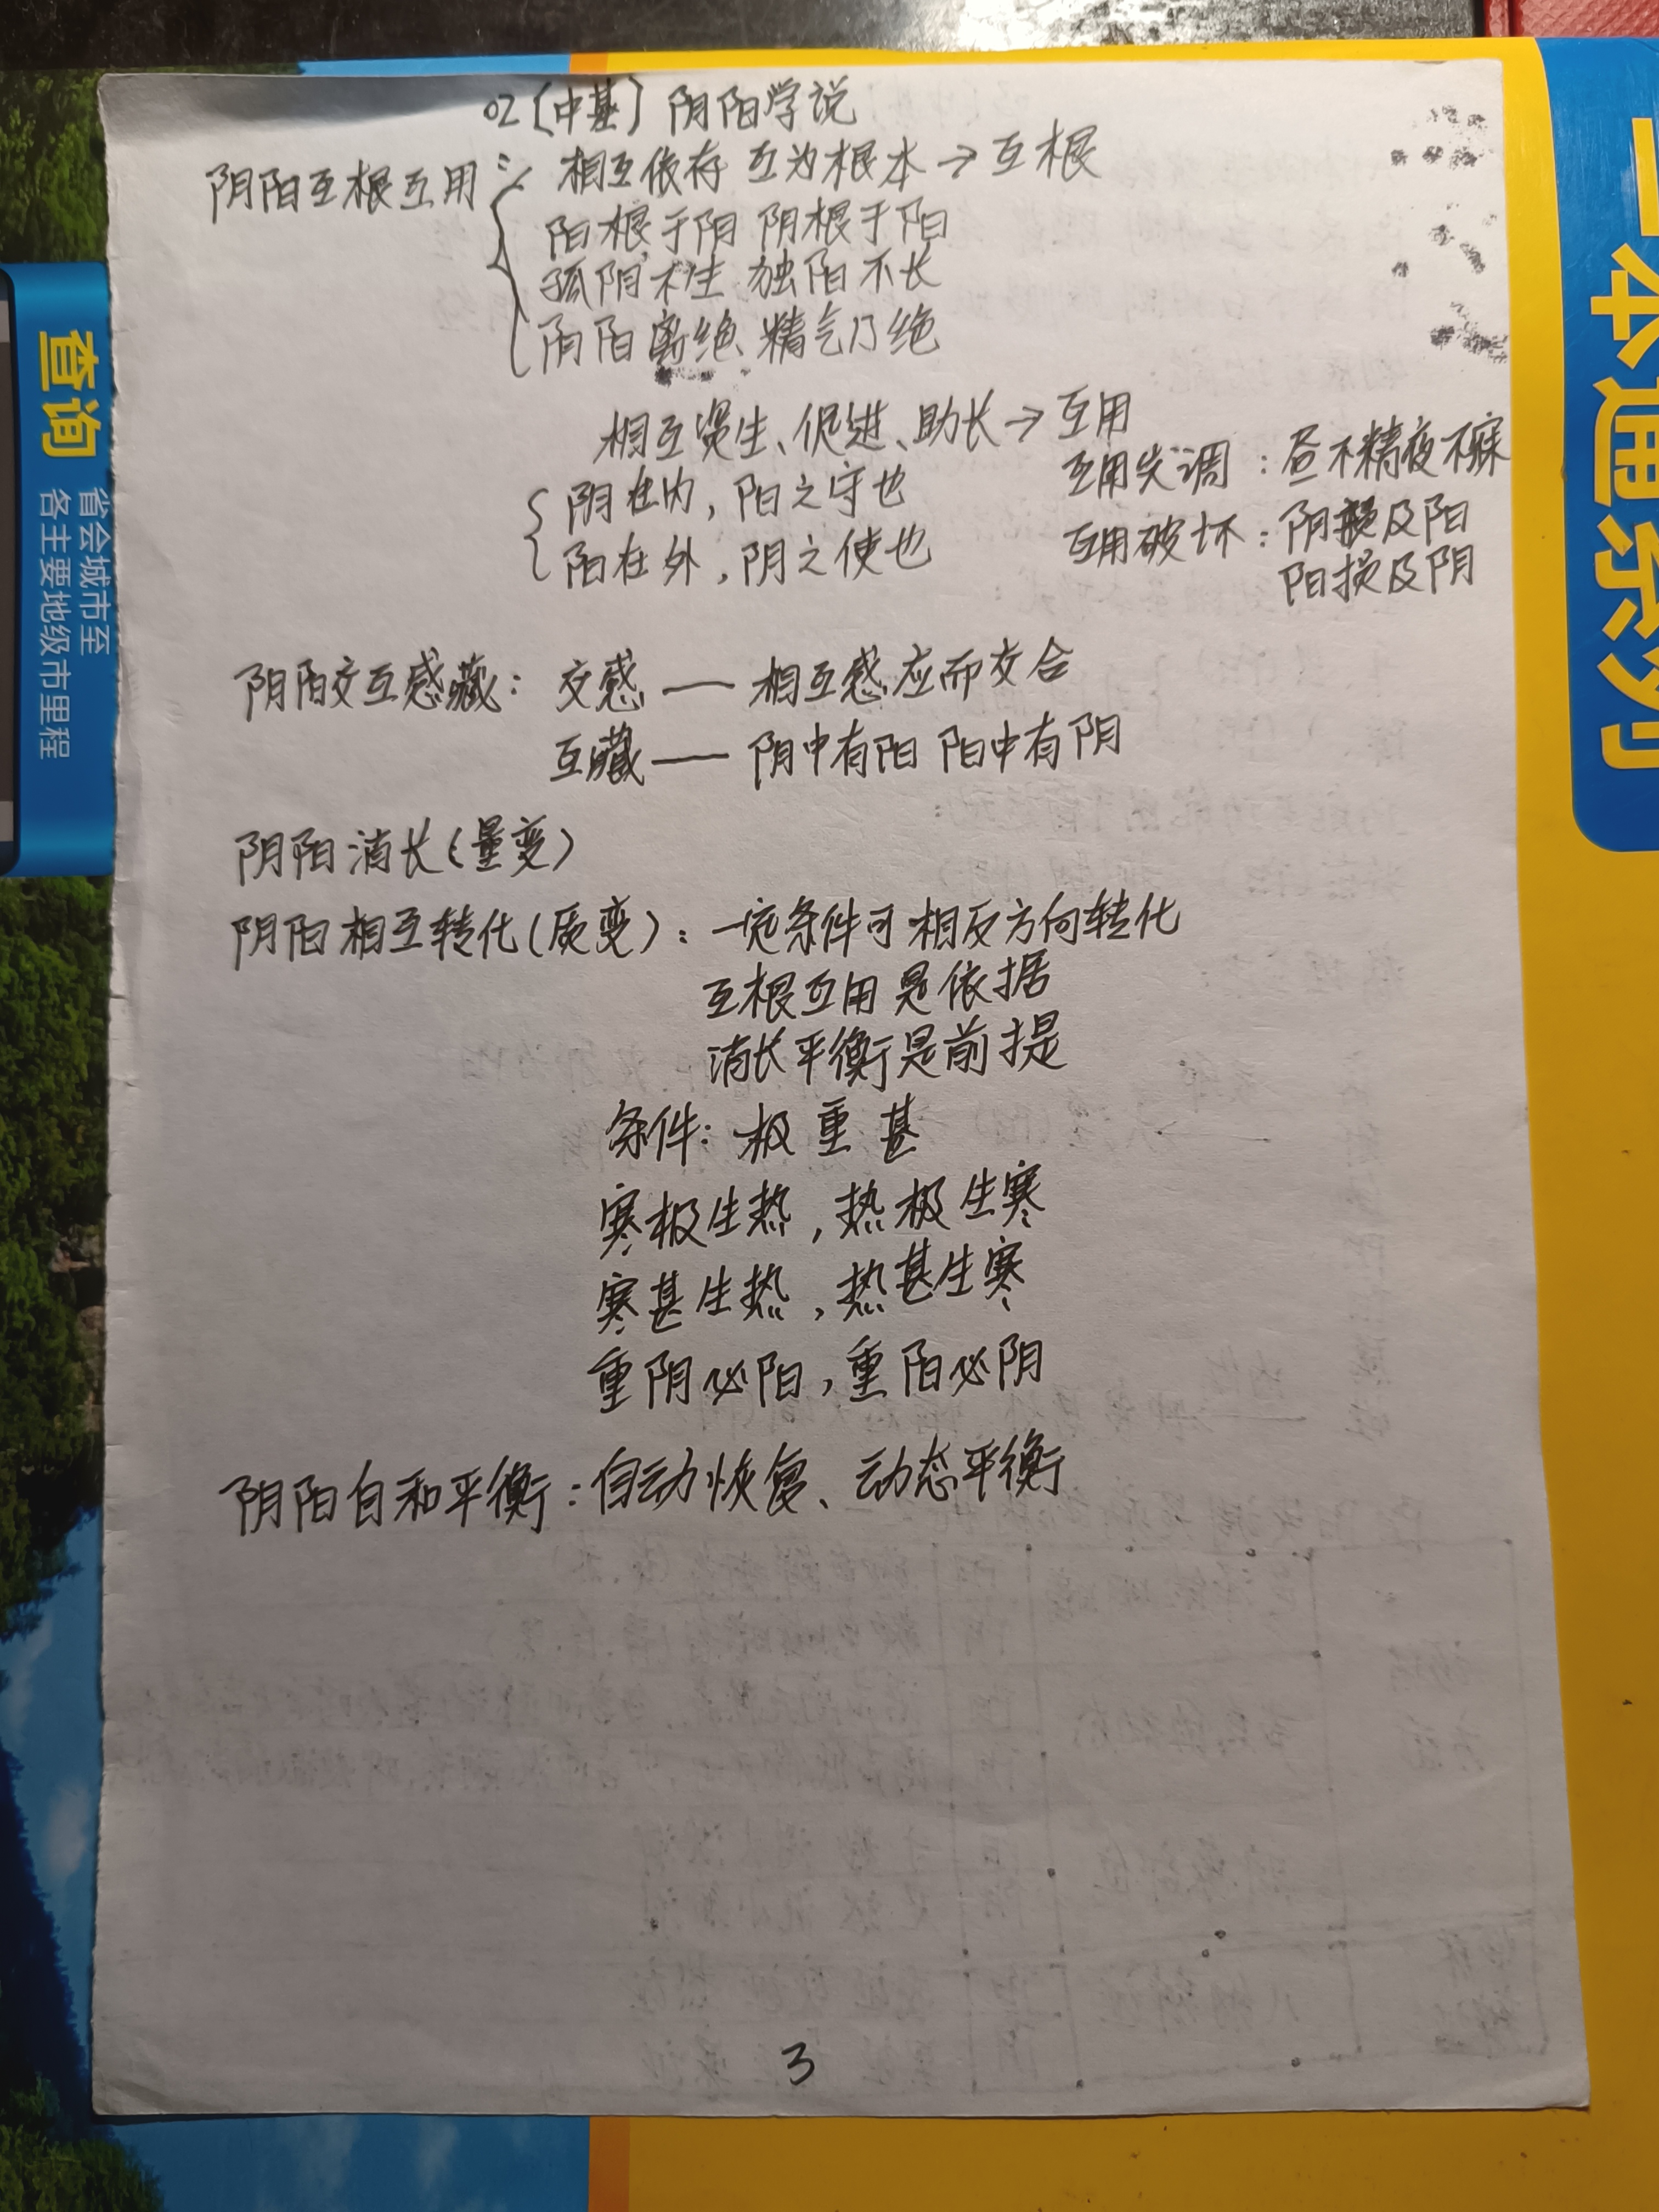 02［中基］阴阳学说
阴阳互根互用： 相互依存 互为根本→互根
阳根于阴 阴根于阳
孤阴不生 独阳不长
阴阳离绝 精气乃绝
相互资生、促进、助长→互用
阴在内，阳之守也
阳在外，阴之使也
互用失调：昼不精夜不寐
互用破坏：阴损及阳
阳损及阴
阴阳交互感藏：交感——相互感应而交合
互藏——阴中有阳 阳中有阴
阴阳消长（量变）
阴阳相互转化（质变）：一定条件可相反方向转化
互根互用是依据
消长平衡是前提
条件：极 重 甚
寒极生热，热极生寒
寒甚生热，热甚生寒
重阴必阳，重阳必阴
阴阳自和平衡：自动恢复、动态平衡
3
查询
省会城市至
各主要地级市里程
一本通系列